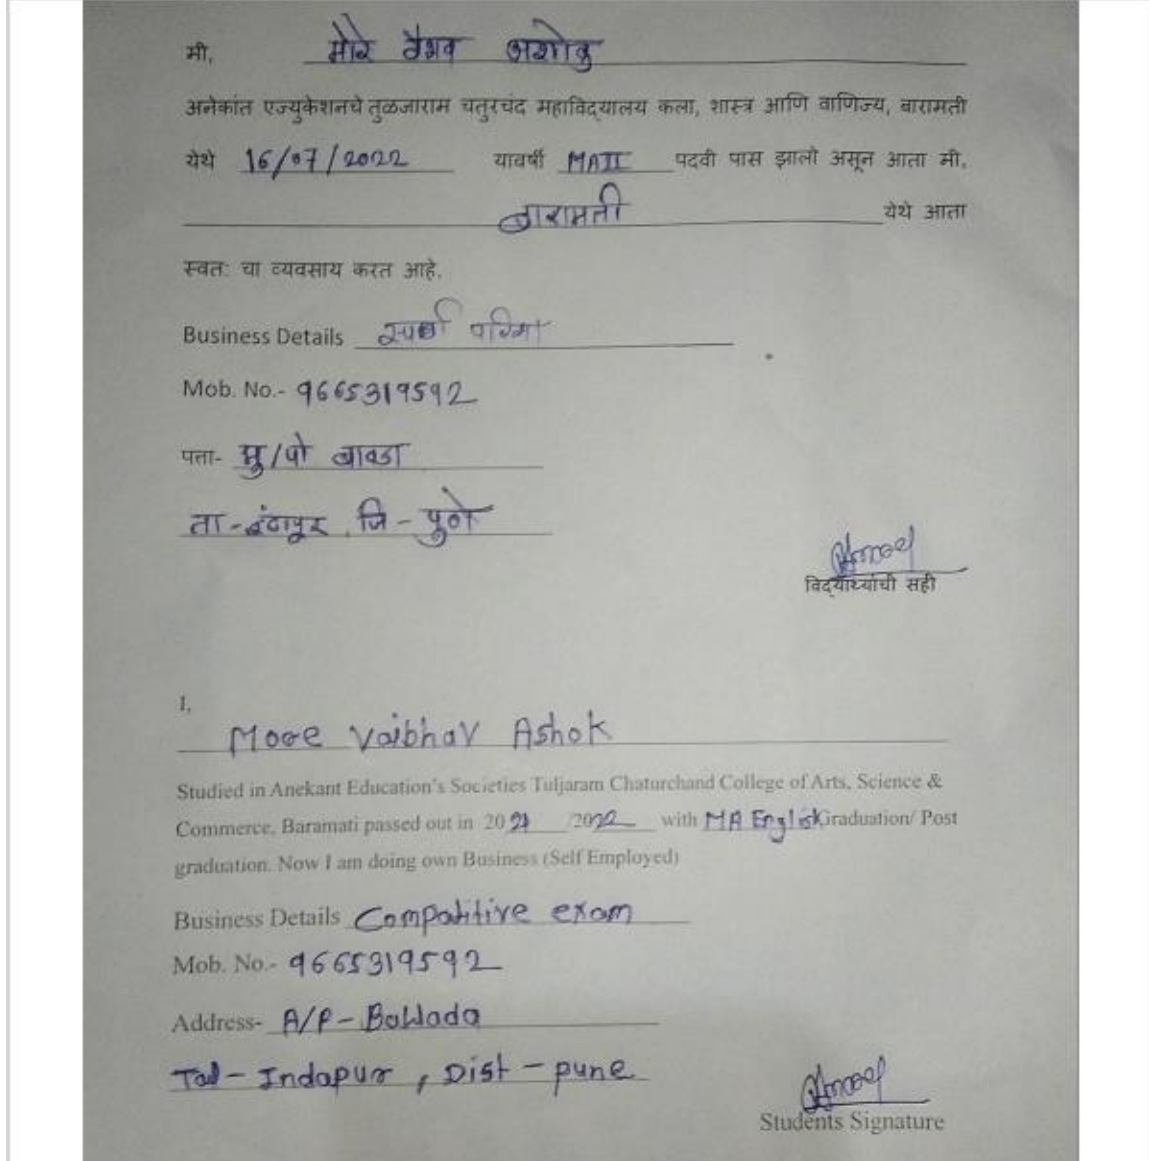 मी, मोरे वैभव अशोक
अनेकांत एज्युकेशनचे तुळजाराम चतुरचंद महाविद्यालय कला, शास्त्र आणि वाणिज्य, बारामती
येथे 16/07/2022 यावर्षी MAII पदवी पास झालो असून आता मी,
बारामती येथे आता
स्वतः चा व्यवसाय करत आहे.
Business Details स्पर्धा
Mob. No.- 9665319592
पत्ता- मु/पो बावडा
ता - इंदापूर, जि - पुणे
विद्यार्थ्याची सही
I,
More Vaibhav Ashok
Studied in Anekant Education's Societies Tuljaram Chaturchand College of Arts, Science &
Commerce, Baramati passed out in 2021 /2022 with MA English Graduation/ Post
graduation. Now I am doing own Business (Self Employed)
Business Details Compatitive exam
Mob. No.- 9665319592
Address- A/P - Bawada
Tal - Indapur, Dist - pune
Students Signature